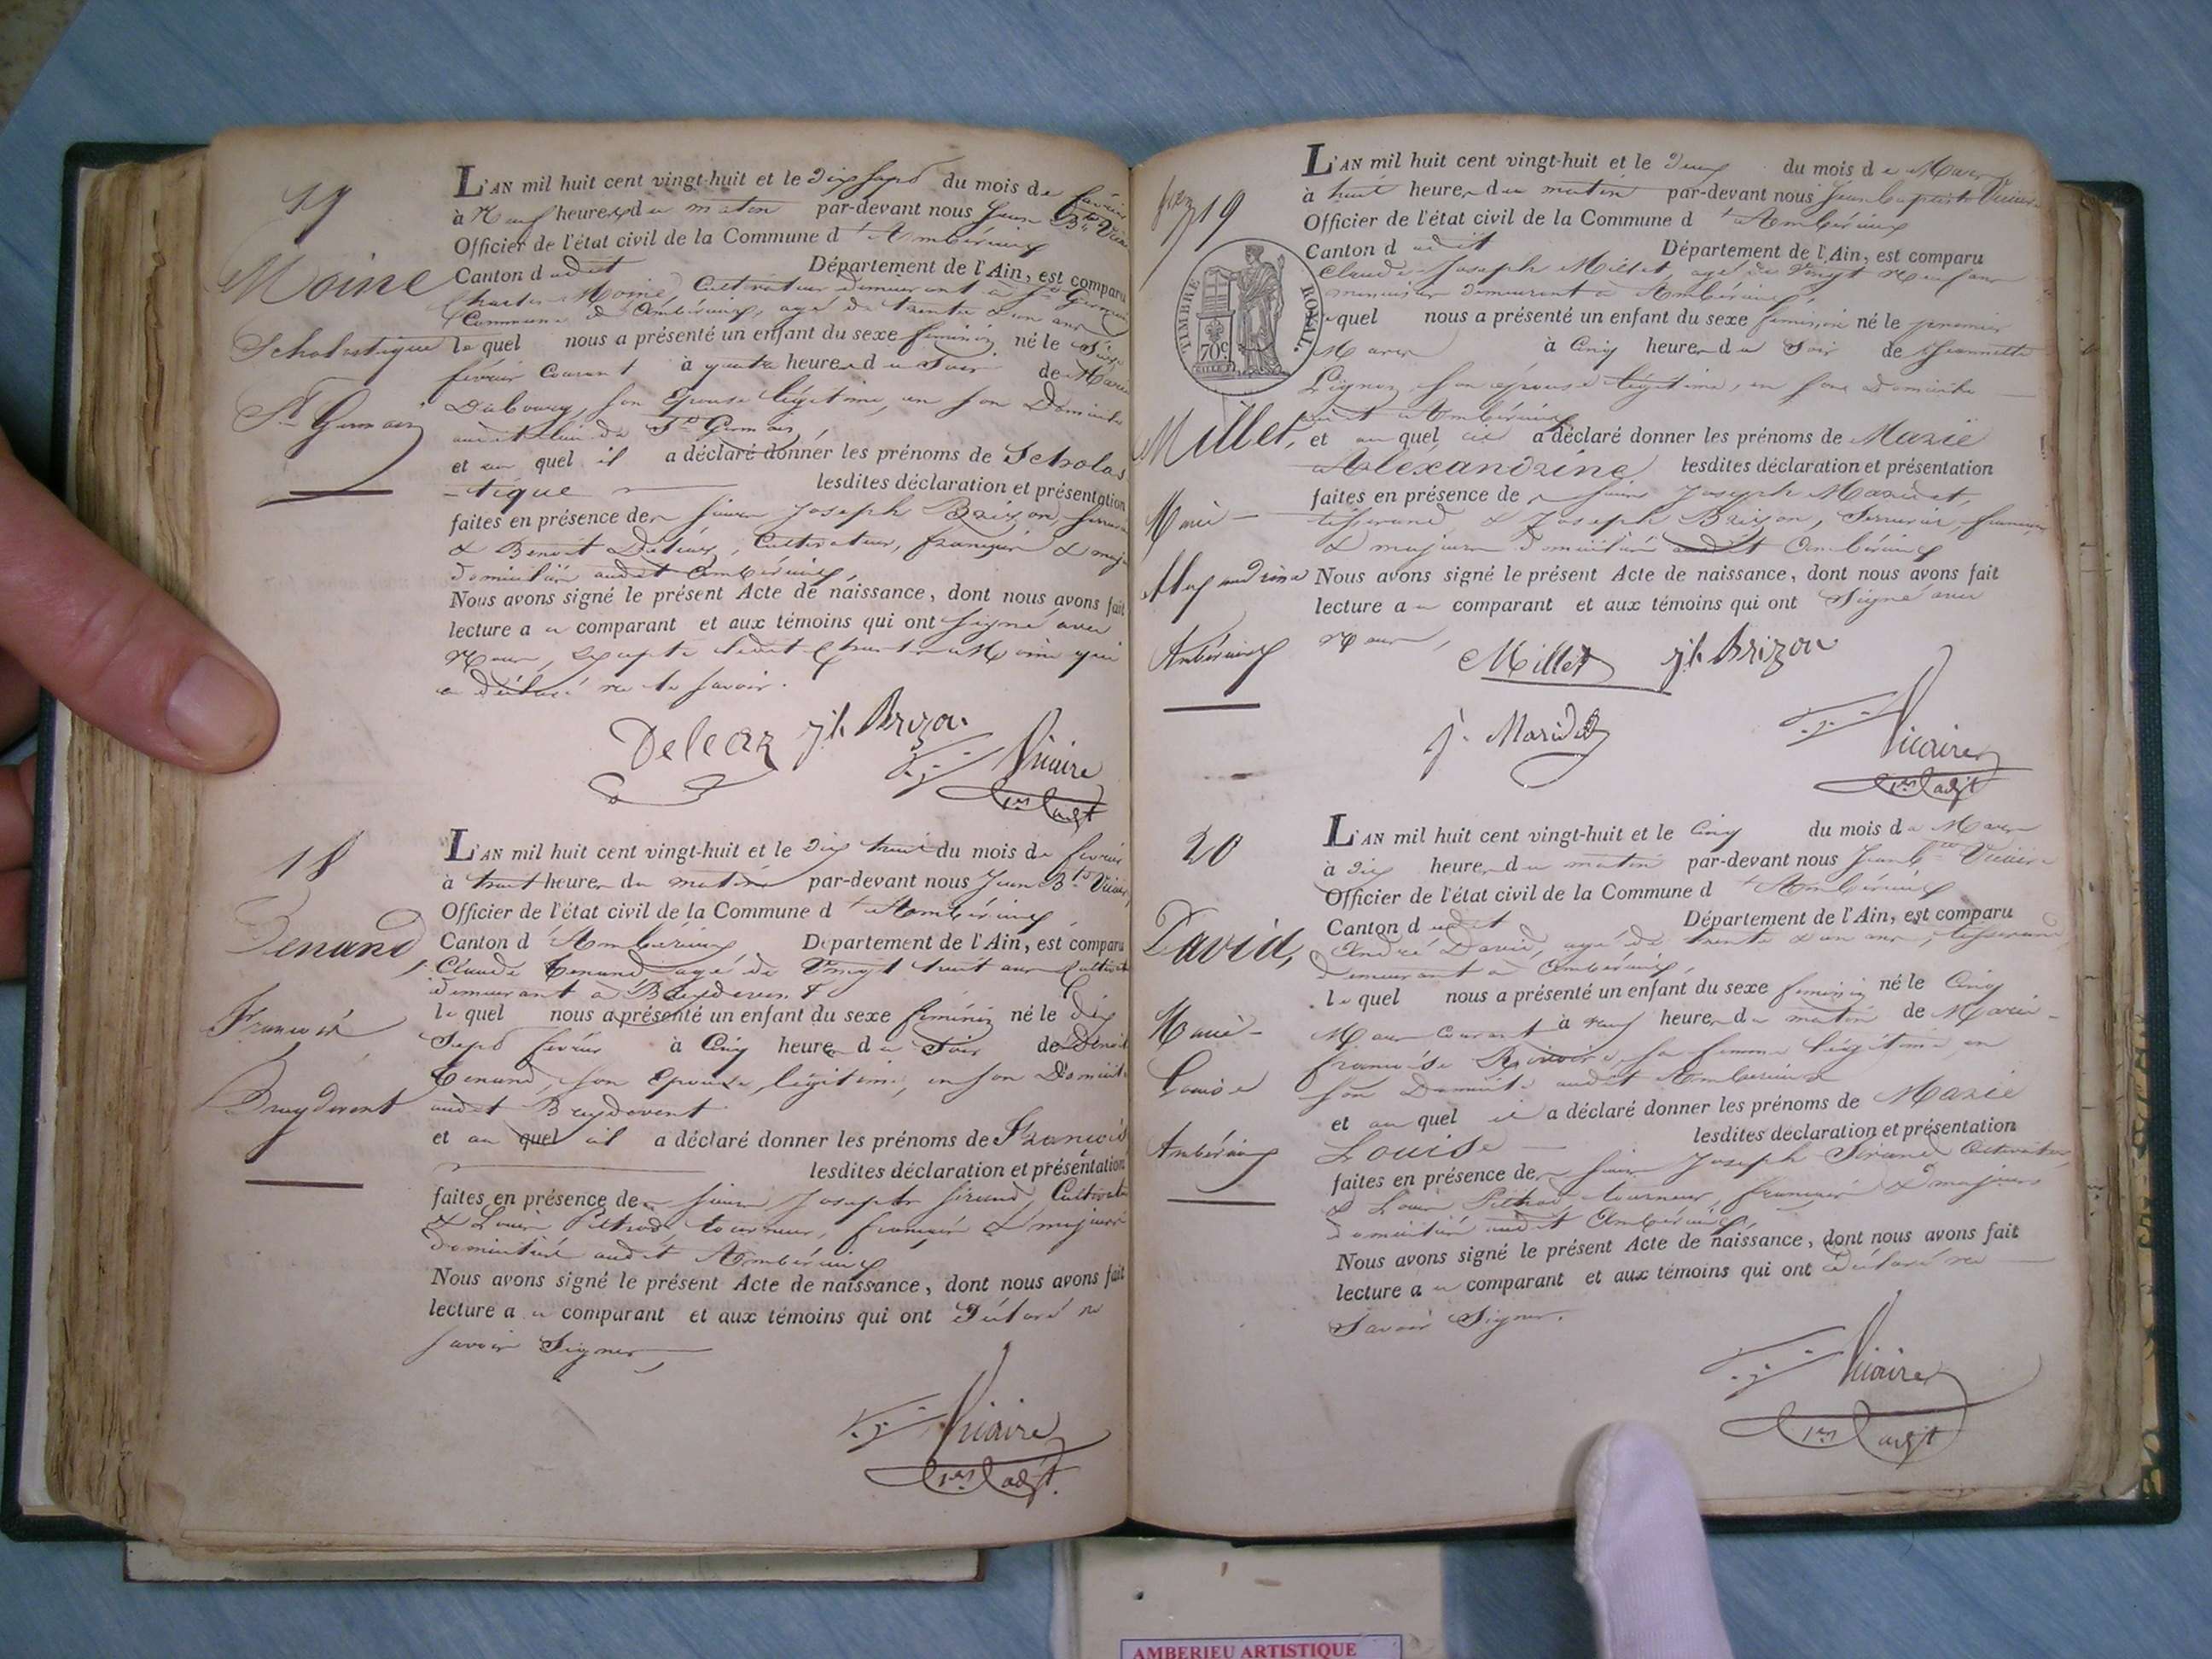 17
Moine
Scholastique
St Germain
L'AN mil huit cent vingt-huit et le dix sept du mois de février
à Neuf heures du matin par-devant nous Jean Bte Vicaire
Officier de l'état civil de la Commune d'Ambérieux
Canton dudit Département de l'Ain, est comparu
Charles Moine, Cultivateur demeurant à St Germain
Commune d'Ambérieux, agé de trente un ans
lequel nous a présenté un enfant du sexe féminin né le Seize
février Courant à quatre heures du Soir de Marie
Dabourg, son Epouse légitime, en son Domicile
audit lieu de St Germain,
et auquel il a déclaré donner les prénoms de Scholas
-tique lesdites déclaration et présentation
faites en présence des sieurs Joseph Brizon, serrurier
& Benoit Deléaz, Cultivateur, français & maj
domiciliés audit Ambérieux,
Nous avons signé le présent Acte de naissance, dont nous avons fait
lecture au comparant et aux témoins qui ont signé avec
Nous, excepté ledit Charles Moine qui
a déclaré ne le savoir.
Deleaz jh Brizon
Vicaire
1er adjt
18
Tenand,
François
Breydevent
L'AN mil huit cent vingt-huit et le dix huit du mois de février
à huit heures du matin par-devant nous Jean Bte Vicaire,
Officier de l'état civil de la Commune d'Ambérieux
Canton d'Ambérieux Département de l'Ain, est comparu
Claude Tenand, agé de Vingt huit ans Cultivat
demeurant à Breydevent
lequel nous a présenté un enfant du sexe féminin né le dix
Sept février à Cinq heures du Soir de
Tenand, son Epouse légitime, en son Domicile
audit Breydevent
et auquel il a déclaré donner les prénoms de François
lesdites déclaration et présentation
faites en présence des sieurs Joseph Sirand, Cultivateur
& Louis Pittrod, tourneur, français & majeurs
domiciliés audit Ambérieux
Nous avons signé le présent Acte de naissance, dont nous avons fait
lecture au comparant et aux témoins qui ont Déclaré ne
savoir Signer
Vicaire
1er adjt.
19
TIMBRE ROYAL.
70c
Millet,
Marie
Alexandrine
Ambérieux
L'AN mil huit cent vingt-huit et le deux du mois de Mars
à huit heures du matin par-devant nous Jean baptiste Vicaire
Officier de l'état civil de la Commune d'Ambérieux
Canton dudit Département de l'Ain, est comparu
Claude Joseph Millet, agé de Vingt Neuf ans
menuisier demeurant à Ambérieux,
lequel nous a présenté un enfant du sexe féminin né le premier
Mars à Cinq heures du Soir de Jeannette
son épouse légitime, en son Domicile
audit Ambérieux
et auquel il a déclaré donner les prénoms de Marie
Alexandrine lesdites déclaration et présentation
faites en présence des sieurs Joseph Maridet,
tisserand & Joseph Brizon, Serrurier, français
& majeurs domiciliés audit Ambérieux
Nous avons signé le présent Acte de naissance, dont nous avons fait
lecture au comparant et aux témoins qui ont Signé avec
Nous,
Millet jh Brizon
j. Maridet
Vicaire
1er adjt
20
David,
Marie
Louise
Ambérieux
L'AN mil huit cent vingt-huit et le Cinq du mois de Mars
à dix heures du matin par-devant nous Jean Bte Vicaire
Officier de l'état civil de la Commune d'Ambérieux
Canton dudit Département de l'Ain, est comparu
André David, agé de trente un ans, tisserand
demeurant à Ambérieux,
lequel nous a présenté un enfant du sexe féminin né le Cinq
Mars Courant à neuf heures du matin de Marie
françoise sa femme légitime en
son Domicile audit Ambérieux
et auquel il a déclaré donner les prénoms de Marie
Louise lesdites déclaration et présentation
faites en présence des sieurs Joseph Sirand Cultivateur,
& Louis Pittrod tourneur, français & majeurs
domiciliés audit Ambérieux,
Nous avons signé le présent Acte de naissance, dont nous avons fait
lecture au comparant et aux témoins qui ont Déclaré ne
Savoir Signer.
Vicaire
1er adjt
AMBERIEU ARTISTIQUE